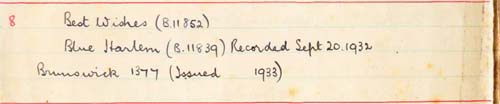 8 Best Wishes (B.11852)
Blue Harlem (B.11839) Recorded Sept 20.1932
Brunswick 1377 (Issued 1933)